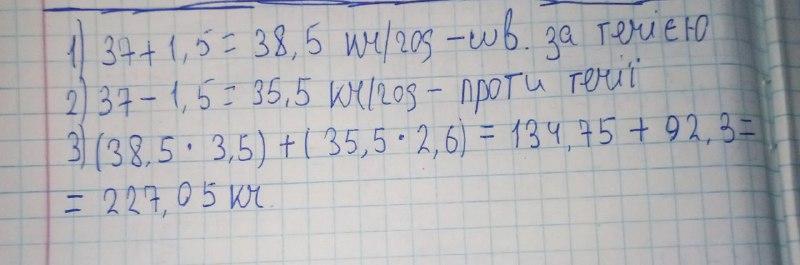 1) 37+1,5=38,5 км/год -шв. за течією
2) 37-1,5=35,5 км/год - проти течії
3) (38,5 · 3,5) + (35,5 · 2,6) = 134,75 + 92,3=
= 227,05 км